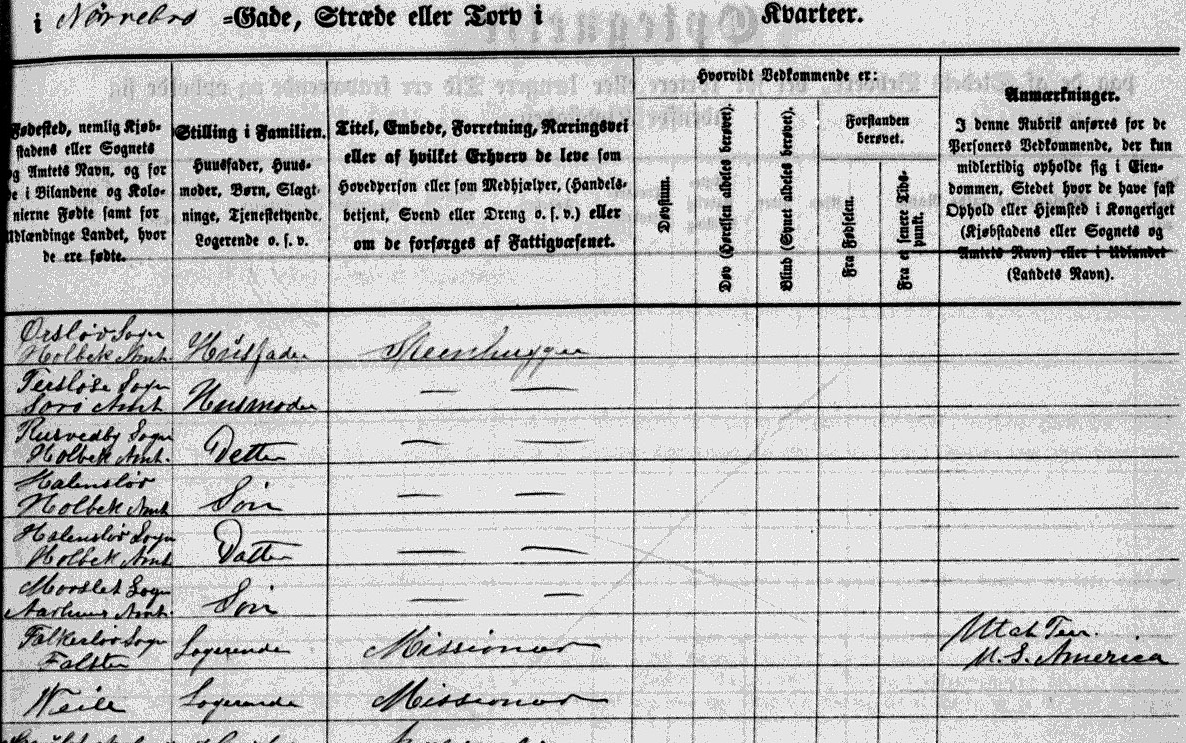 i Nørrebro =Gade, Stræde eller Torv i Kvarteer.
Fødested, nemlig Kjøb-
stadens eller Sognets
og Amtets Navn, og for
de i Bilandene og Kolo-
nierne Fødte samt for
Udlændinge Landet, hvor
de ere fødte.
Stilling i Familien.
Huusfader, Huus-
moder, Børn, Slægt-
ninge, Tjenestetyende,
Logerende o. s. v.
Titel, Embede, Forretning, Næringsvei
eller af hvilket Erhverv de leve som
Hovedperson eller som Medhjælper, (Handels-
betjent, Svend eller Dreng o. s. v.) eller
om de forsørges af Fattigvæsenet.
Hvorvidt Vedkommende er:
Døvstum.
Døv (Hørelsen aldeles berøvet).
Blind (Synet aldeles berøvet).
Forstanden
berøvet.
Fra Fødselen.
Fra et senere Tids-
punkt.
Anmærkninger.
I denne Rubrik anføres for de
Personers Vedkommende, der kun
midlertidig opholde sig i Eien-
dommen, Stedet hvor de have fast
Ophold eller Hjemsted i Kongeriget
(Kjøbstadens eller Sognets og
Amtets Navn) eller i Udlandet
(Landets Navn).
Ørsløv Sogn
Holbek Amt. Husfader Steenhugger
Tersløse Sogn
Sorø Amt Husmoder — —
Rusvedby Sogn
Holbek Amt. Detter — —
Halensløv
Holbek Amt Søn — —
Halensløv Sogn
Holbek Amt Datter — —
Morslet Sogn
Aarhuus Amt. Søn — —
Falkersløv Sogn
Falster Logerende Missionær Utah Terr.
U. S. America
Weile Logerende Missionær